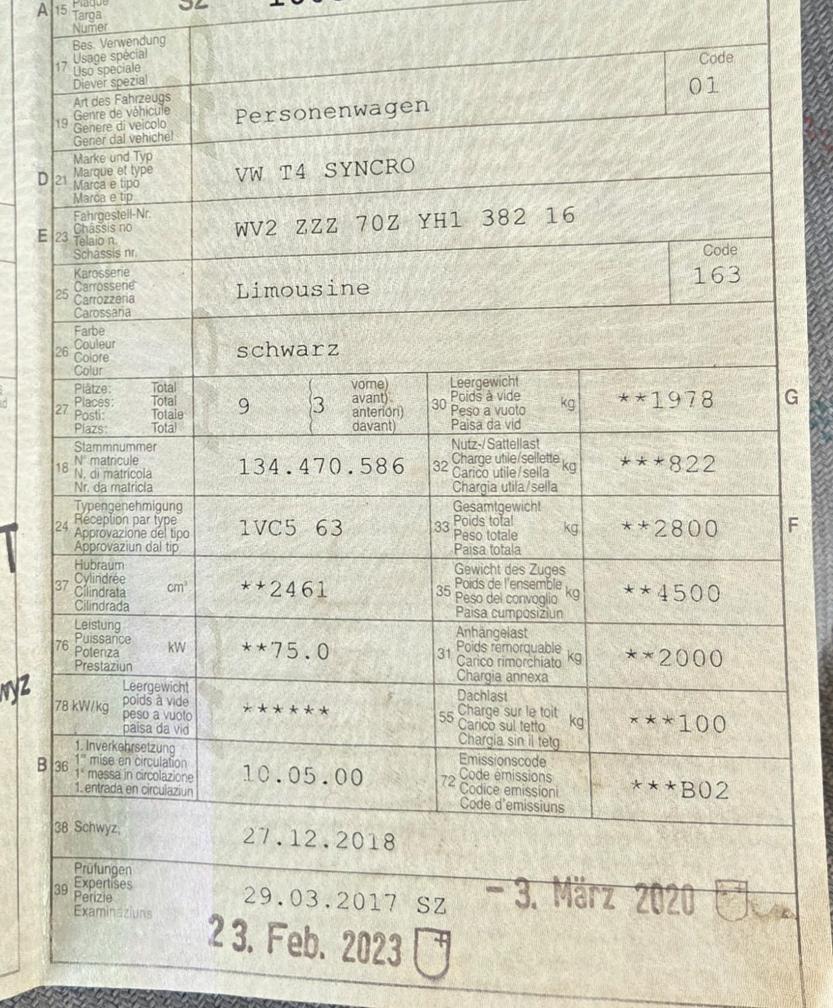 A 15 Plaque
Targa
Numer
SZ
17 Bes. Verwendung
Usage spécial
Uso speciale
Diever spezial
19 Art des Fahrzeugs
Genre de véhicule
Genere di veicolo
Gener dal vehichel
Personenwagen
Code
01
D 21 Marke und Typ
Marque et type
Marca e tipo
Marca e tip
VW T4 SYNCRO
E 23 Fahrgestell-Nr.
Châssis no
Telaio n.
Schassis nr.
WV2 ZZZ 70Z YH1 382 16
25 Karosserie
Carrosserie
Carrozzeria
Carossaria
Limousine
Code
163
26 Farbe
Couleur
Colore
Colur
schwarz
27 Plätze: Total
Places: Total
Posti: Totale
Plazs: Total
9 (3 vorne)
avant)
anteriori)
davant)
30 Leergewicht
Poids à vide
Peso a vuoto
Paisa da vid
kg
**1978
G
18 Stammnummer
N° matricule
N. di matricola
Nr. da matricla
134.470.586
32 Nutz-/Sattellast
Charge utile/sellette
Carico utile/sella
Chargia utila/sella
kg
***822
24 Typengenehmigung
Réception par type
Approvazione del tipo
Approvaziun dal tip
1VC5 63
33 Gesamtgewicht
Poids total
Peso totale
Paisa totala
kg
**2800
F
37 Hubraum
Cylindrée
Cilindrata
Cilindrada
cm³
**2461
35 Gewicht des Zuges
Poids de l'ensemble
Peso del convoglio
Paisa cumposiziun
kg
**4500
76 Leistung
Puissance
Potenza
Prestaziun
kW
**75.0
31 Anhängelast
Poids remorquable
Carico rimorchiato
Chargia annexa
kg
**2000
78 kW/kg Leergewicht
poids à vide
peso a vuoto
paisa da vid
******
55 Dachlast
Charge sur le toit
Carico sul tetto
Chargia sin il tetg
kg
***100
B 36 1. Inverkehrsetzung
1re mise en circulation
1a messa in circolazione
1. entrada en circulaziun
10.05.00
72 Emissionscode
Code émissions
Codice emissioni
Code d'emissiuns
***B02
38 Schwyz,
27.12.2018
39 Prüfungen
Expertises
Perizie
Examinaziuns
29.03.2017 SZ
- 3. März 2020
23. Feb. 2023